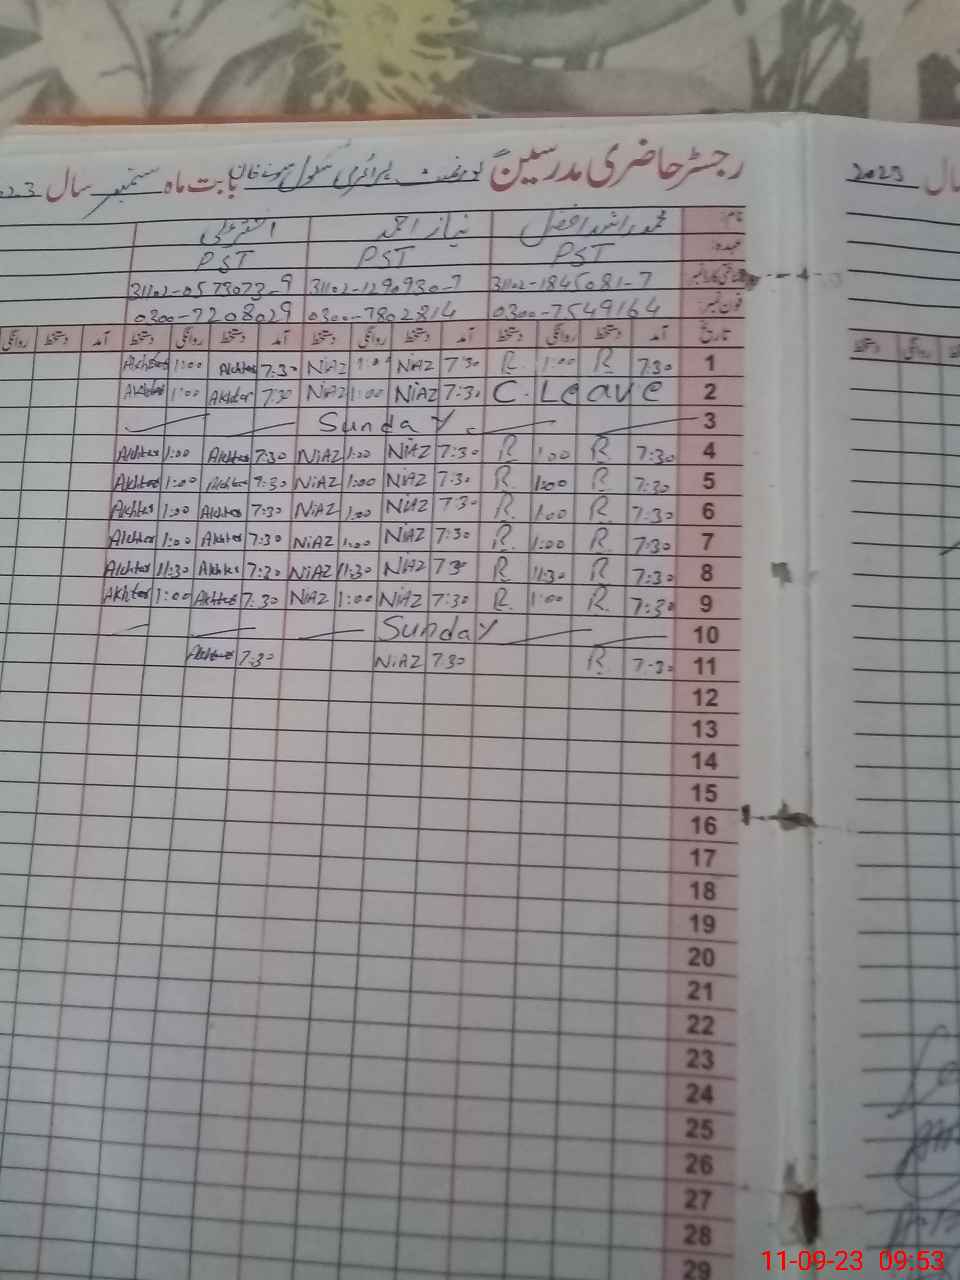 رجسٹر حاضری مدرسین گورنمنٹ پرائمری سکول بابت ماہ ستمبر سال 2023
نام: محمد راشد افضل نیاز احمد اختر علی
عہدہ: PST PST PST
31102-1845081-7 31102-1290930-7 31102-0573073-9
فون نمبر: 0300-7549164 0300-7802814 0300-7208029
تاریخ آمد دستخط روانگی دستخط آمد دستخط روانگی دستخط آمد دستخط روانگی دستخط آمد دستخط روانگی
1 7:30 R 1:00 R. 7:30 NiAZ 1:00 NiAZ 7:30 Akhter 1:00 Akhter
2 C. Leave 7:30 NiAZ 1:00 NiAZ 7:30 Akhter 1:00 Akhter
3 Sunday
4 7:30 R. 1:00 R 7:30 NiAZ 1:00 NiAZ 7:30 Akhter 1:00 Akhter
5 7:30 R. 1:00 R. 7:30 NiAZ 1:00 NiAZ 7:30 Akhter 1:00 Akhter
6 7:30 R. 1:00 R. 7:30 NiAZ 1:00 NiAZ 7:30 Akhter 1:00 Akhter
7 7:30 R. 1:00 R. 7:30 NiAZ 1:00 NiAZ 7:30 Akhter 1:00 Akhter
8 7:30 R. 11:30 R 7:30 NiAZ 11:30 NiAZ 7:30 Akhter 11:30 Akhter
9 7:30 R. 1:00 R. 7:30 NiAZ 1:00 NiAZ 7:30 Akhter 1:00 Akhter
10 Sunday
11 7:30 R. 7:30 NiAZ 7:30 Akhter
12
13
14
15
16
17
18
19
20
21
22
23
24
25
26
27
28
29
سال 2023
دستخط روانگی
11-09-23 09:53